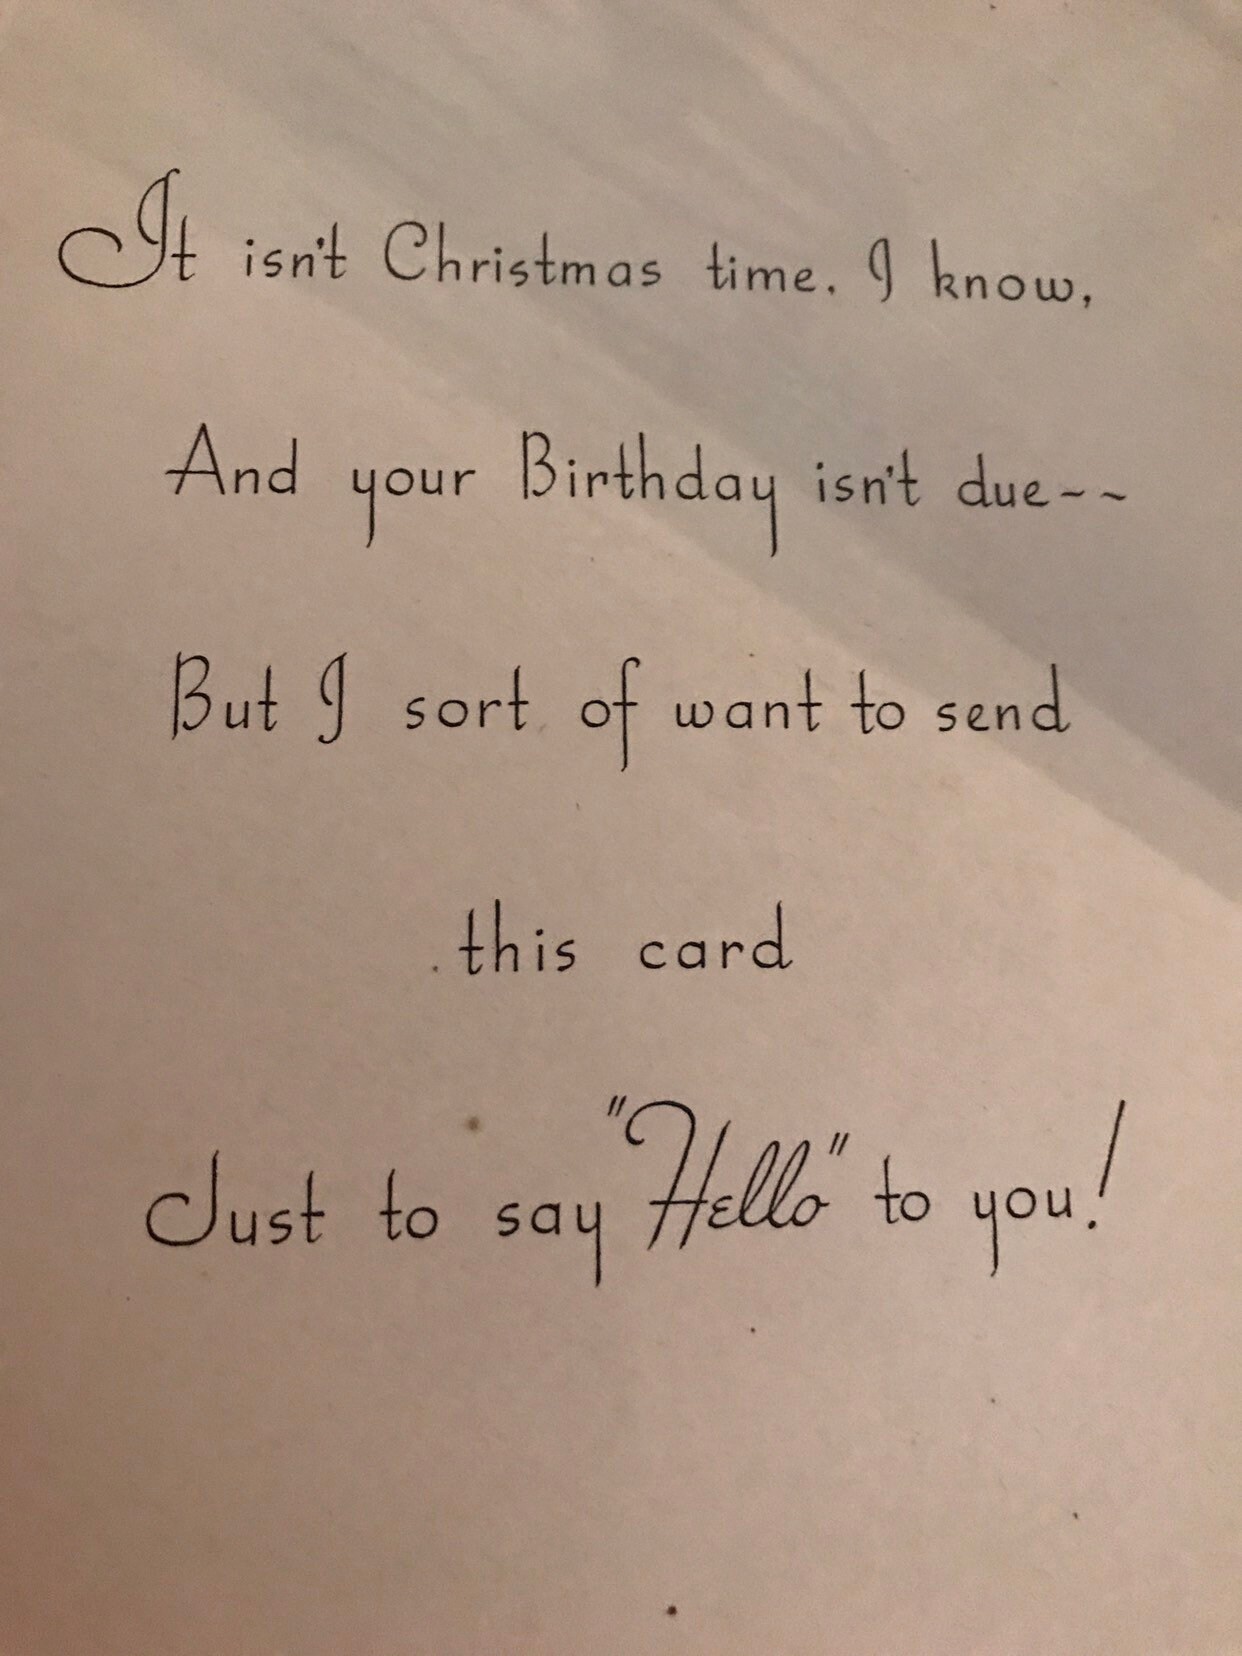 It isn't Christmas time. I know,
And your Birthday isn't due--
But I sort of want to send
this card
Just to say "Hello" to you!